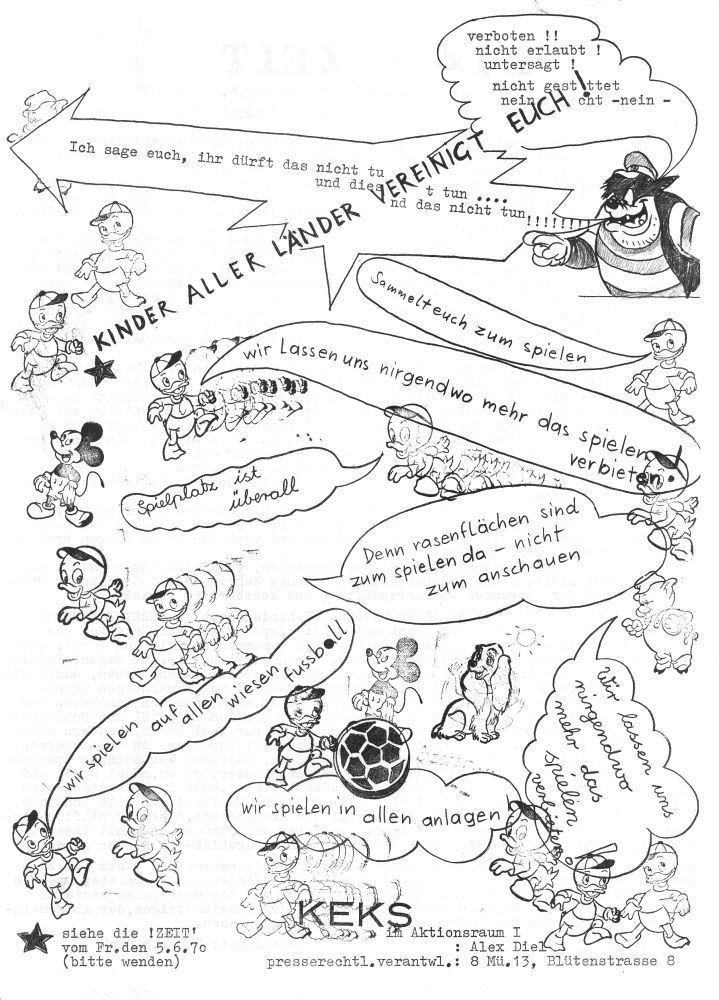 verboten !!
nicht erlaubt !
untersagt !
nicht gest ttet
nein cht -nein -
Ich sage euch, ihr dürft das nicht tu
und dies t tun ....
nd das nicht tun!!!!!!!
KINDER ALLER LÄNDER VEREINIGT EUCH!
Sammelt euch zum spielen
wir lassen uns nirgendwo mehr das spielen
verbieten!
Spielplatz ist
überall
Denn rasenflächen sind
zum spielen da - nicht
zum anschauen
wir spielen auf allen wiesen fussball
wir lassen uns
nirgendwo
mehr das
spielen
verbieten!
wir spielen in allen anlagen
KEKS im Aktionsraum I
siehe die !ZEIT' : Alex Diel
vom Fr.den 5.6.7o
(bitte wenden) presserechtl.verantwl.: 8 Mü.13, Blütenstrasse 8